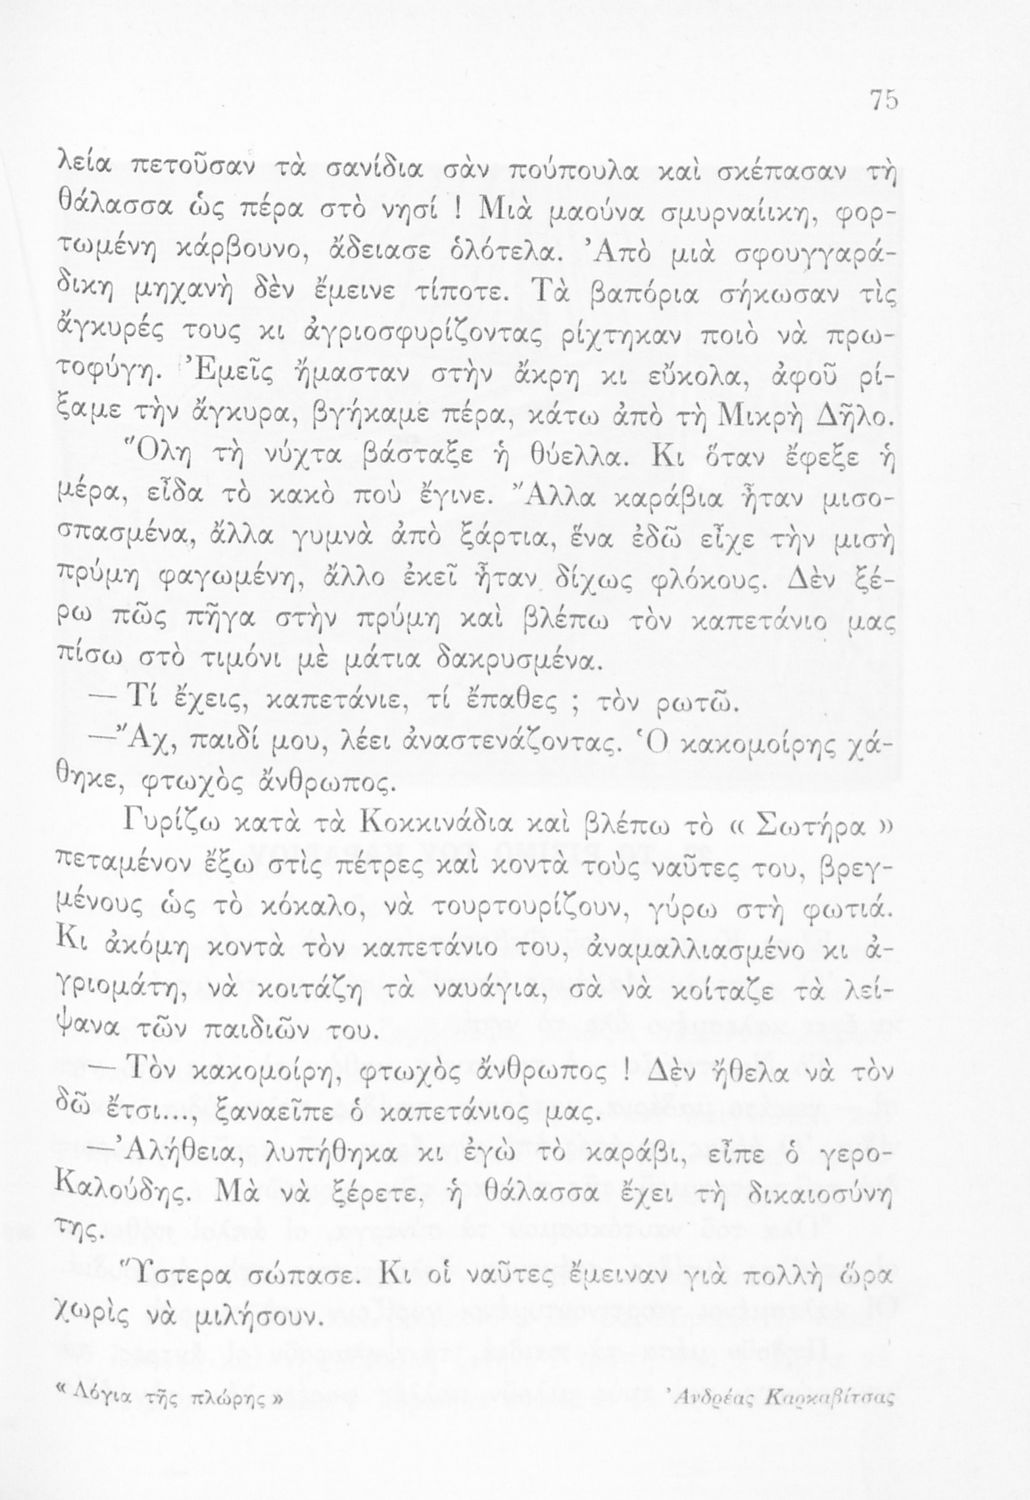 75
λεία πετοῦσαν τὰ σανίδια σὰν πούπουλα καὶ σκέπασαν τὴ
θάλασσα ὡς πέρα στὸ νησί ! Μιὰ μαούνα σμυρναίικη, φορ-
τωμένη κάρβουνο, ἄδειασε ὁλότελα. Ἀπὸ μιὰ σφουγγαρά-
δικη μηχανὴ δὲν ἔμεινε τίποτε. Τὰ βαπόρια σήκωσαν τὶς
ἄγκυρές τους κι ἀγριοσφυρίζοντας ρίχτηκαν ποιὸ νὰ πρω-
τοφύγη. Ἐμεῖς ἤμασταν στὴν ἄκρη κι εὔκολα, ἀφοῦ ρί-
ξαμε τὴν ἄγκυρα, βγήκαμε πέρα, κάτω ἀπὸ τὴ Μικρὴ Δῆλο.
Ὅλη τὴ νύχτα βάσταξε ἡ θύελλα. Κι ὅταν ἔφεξε ἡ
μέρα, εἶδα τὸ κακὸ ποὺ ἔγινε. Ἄλλα καράβια ἦταν μισο-
σπασμένα, ἄλλα γυμνὰ ἀπὸ ξάρτια, ἕνα ἐδῶ εἶχε τὴν μισὴ
πρύμη φαγωμένη, ἄλλο ἐκεῖ ἦταν δίχως φλόκους. Δὲν ξέ-
ρω πῶς πῆγα στὴν πρύμη καὶ βλέπω τὸν καπετάνιο μας
πίσω στὸ τιμόνι μὲ μάτια δακρυσμένα.
— Τί ἔχεις, καπετάνιε, τί ἔπαθες ; τὸν ρωτῶ.
—Ἄχ, παιδί μου, λέει ἀναστενάζοντας. Ὁ κακομοίρης χά-
θηκε, φτωχὸς ἄνθρωπος.
Γυρίζω κατὰ τὰ Κοκκινάδια καὶ βλέπω τὸ « Σωτήρα »
πεταμένον ἔξω στὶς πέτρες καὶ κοντὰ τοὺς ναῦτες του, βρεγ-
μένους ὡς τὸ κόκαλο, νὰ τουρτουρίζουν, γύρω στὴ φωτιά.
Κι ἀκόμη κοντὰ τὸν καπετάνιο του, ἀναμαλλιασμένο κι ἀ-
γριομάτη, νὰ κοιτάζη τὰ ναυάγια, σὰ νὰ κοίταζε τὰ λεί-
ψανα τῶν παιδιῶν του.
— Τὸν κακομοίρη, φτωχὸς ἄνθρωπος ! Δὲν ἤθελα νὰ τὸν
δῶ ἔτσι..., ξαναεῖπε ὁ καπετάνιος μας.
—Ἀλήθεια, λυπήθηκα κι ἐγὼ τὸ καράβι, εἶπε ὁ γερο-
Καλούδης. Μὰ νὰ ξέρετε, ἡ θάλασσα ἔχει τὴ δικαιοσύνη
της.
Ὕστερα σώπασε. Κι οἱ ναῦτες ἔμειναν γιὰ πολλὴ ὥρα
χωρὶς νὰ μιλήσουν.
« Λόγια τῆς πλώρης » Ἀνδρέας Καρκαβίτσας